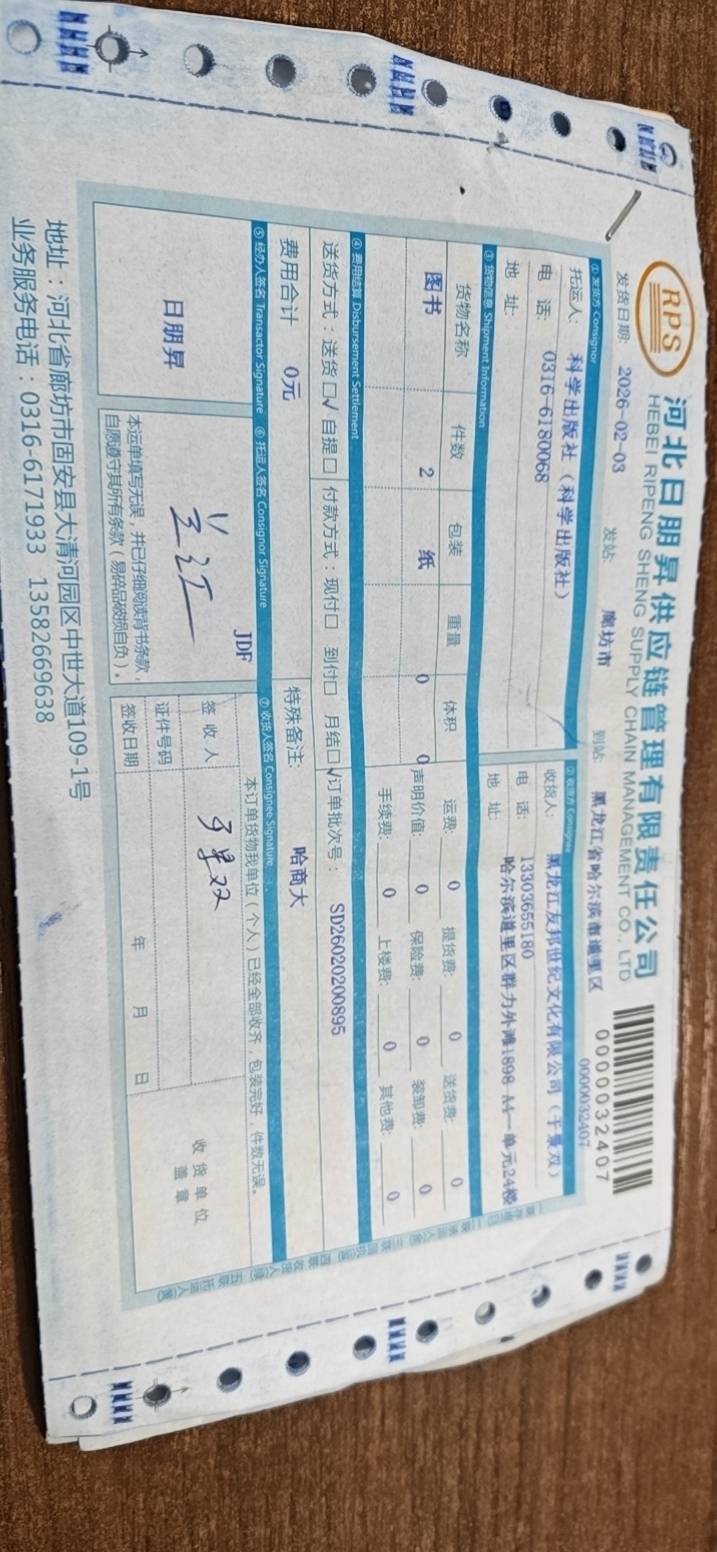 RPS
河北日朋昇供应链管理有限责任公司
HEBEI RIPENG SHENG SUPPLY CHAIN MANAGEMENT CO., LTD
0000032407
0000032407
发货日期: 2026-02-03 发站: 廊坊市 到站: 黑龙江省哈尔滨市道里区
① 发货方 Consignor
托运人: 科学出版社（科学出版社）
电 话: 0316-6180068
地 址:
② 收货方 Consignee
收货人: 黑龙江友邦世纪文化有限公司（于景双）
电 话: 13303655180
地 址: 哈尔滨道里区群力外滩1898 A4一单元24楼
③ 货物信息 Shipment Information
货物名称 件数 包装 重量 体积
图书 2 纸 0 0
运费: 0 提货费: 0 送货费: 0
声明价值: 0 保险费: 0 装卸费: 0
手续费: 0 上楼费: 0 其他费: 0
④ 费用结算 Disbursement Settlement
送货方式：送货□√ 自提□ 付款方式：现付□ 到付□ 月结□√ 订单批次号： SD26020200895
费用合计 0元 特殊备注: 哈商大
⑤ 经办人签名 Transactor Signature ⑥ 托运人签名 Consignor Signature ⑦ 收货人签名 Consignee Signature
日朋昇
JDF
兰江
本运单填写无误，并已仔细阅读背书条款，
自愿遵守其所有条款（易碎品破损自负）。
本订单货物我单位（个人）已经全部收齐，包装完好，件数无误。
签收人
证件号码
签收日期 年 月 日
收货单位
盖章
地址：河北省廊坊市固安县大清河园区中世大道109-1号
业务服务电话：0316-6171933 13582669638